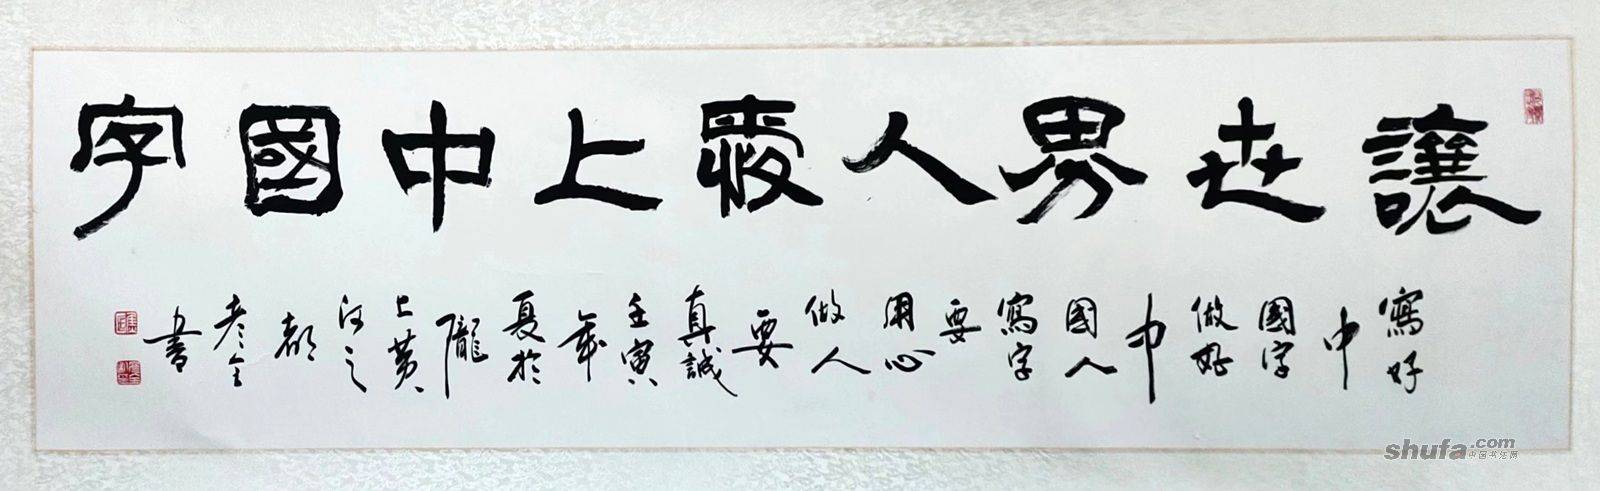 讓世界人愛上中國字
寫好
中
國字
做好
中
國人
寫字
要
用心
做人
要
真誠
壬寅
年
夏於
隴
上黃
河之
都
書
shufa.com
中国书法网